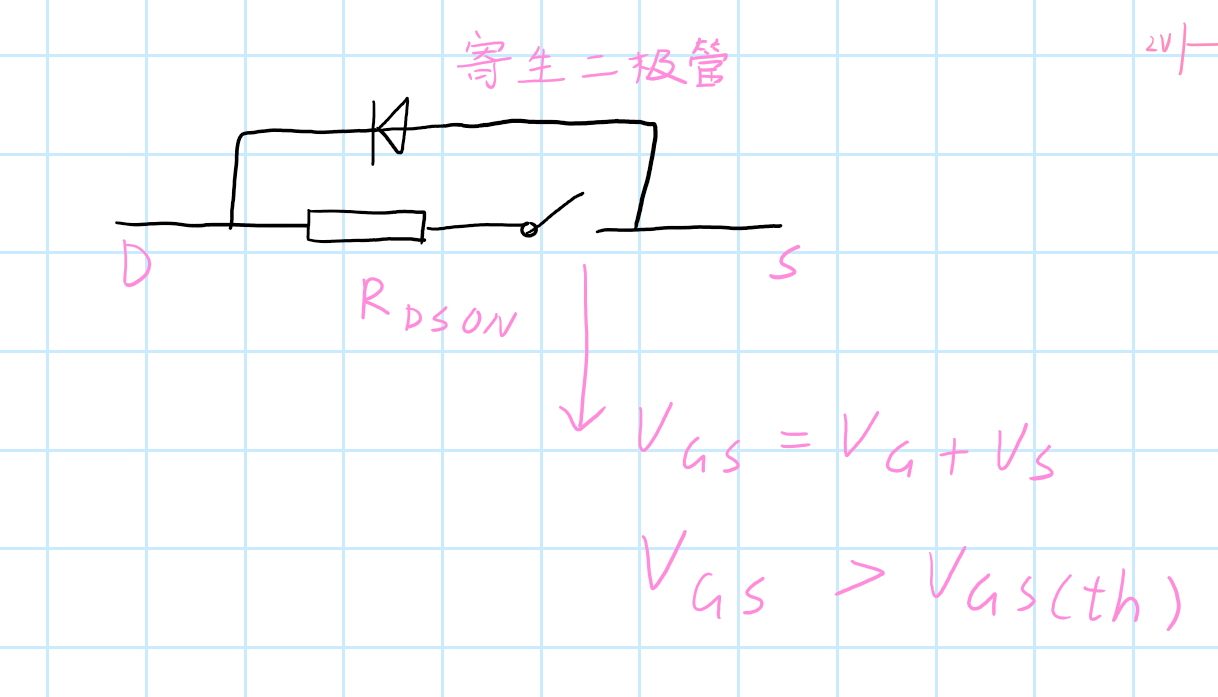 寄生二极管
2V
D
S
R DSON
V GS = V G + V S
V GS > V GS(th)